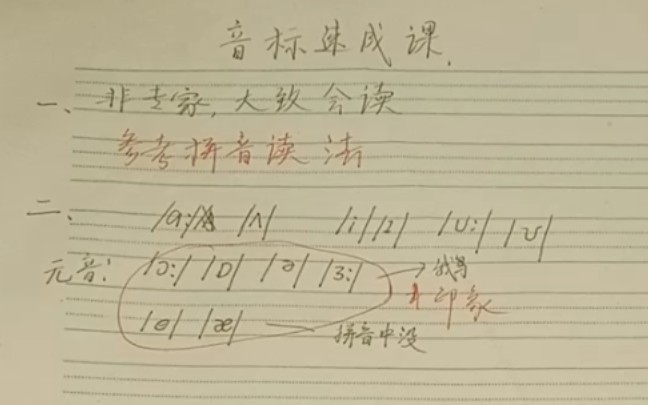 音标速成课.
一、非专家,大致会读
参考拼音读法
二、/ɑ:/ /ʌ/ /i/ /ɪ/ /u:/ /ʊ/
元音: /ɔ:/ /ɒ/ /ə/ /ɜ:/ →
印象
/e/ /æ/ — 拼音中没